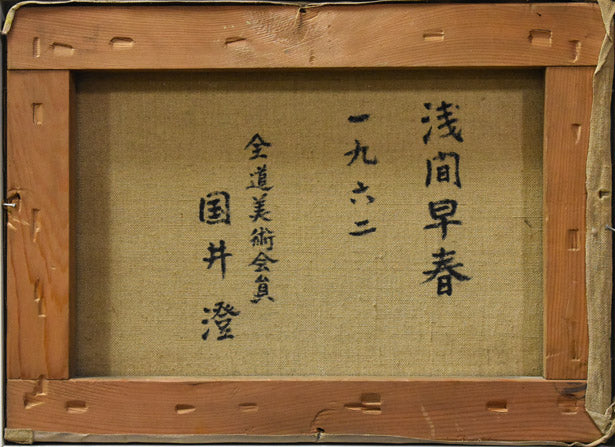 浅間早春
一九六二
全道美術会員
国井澄